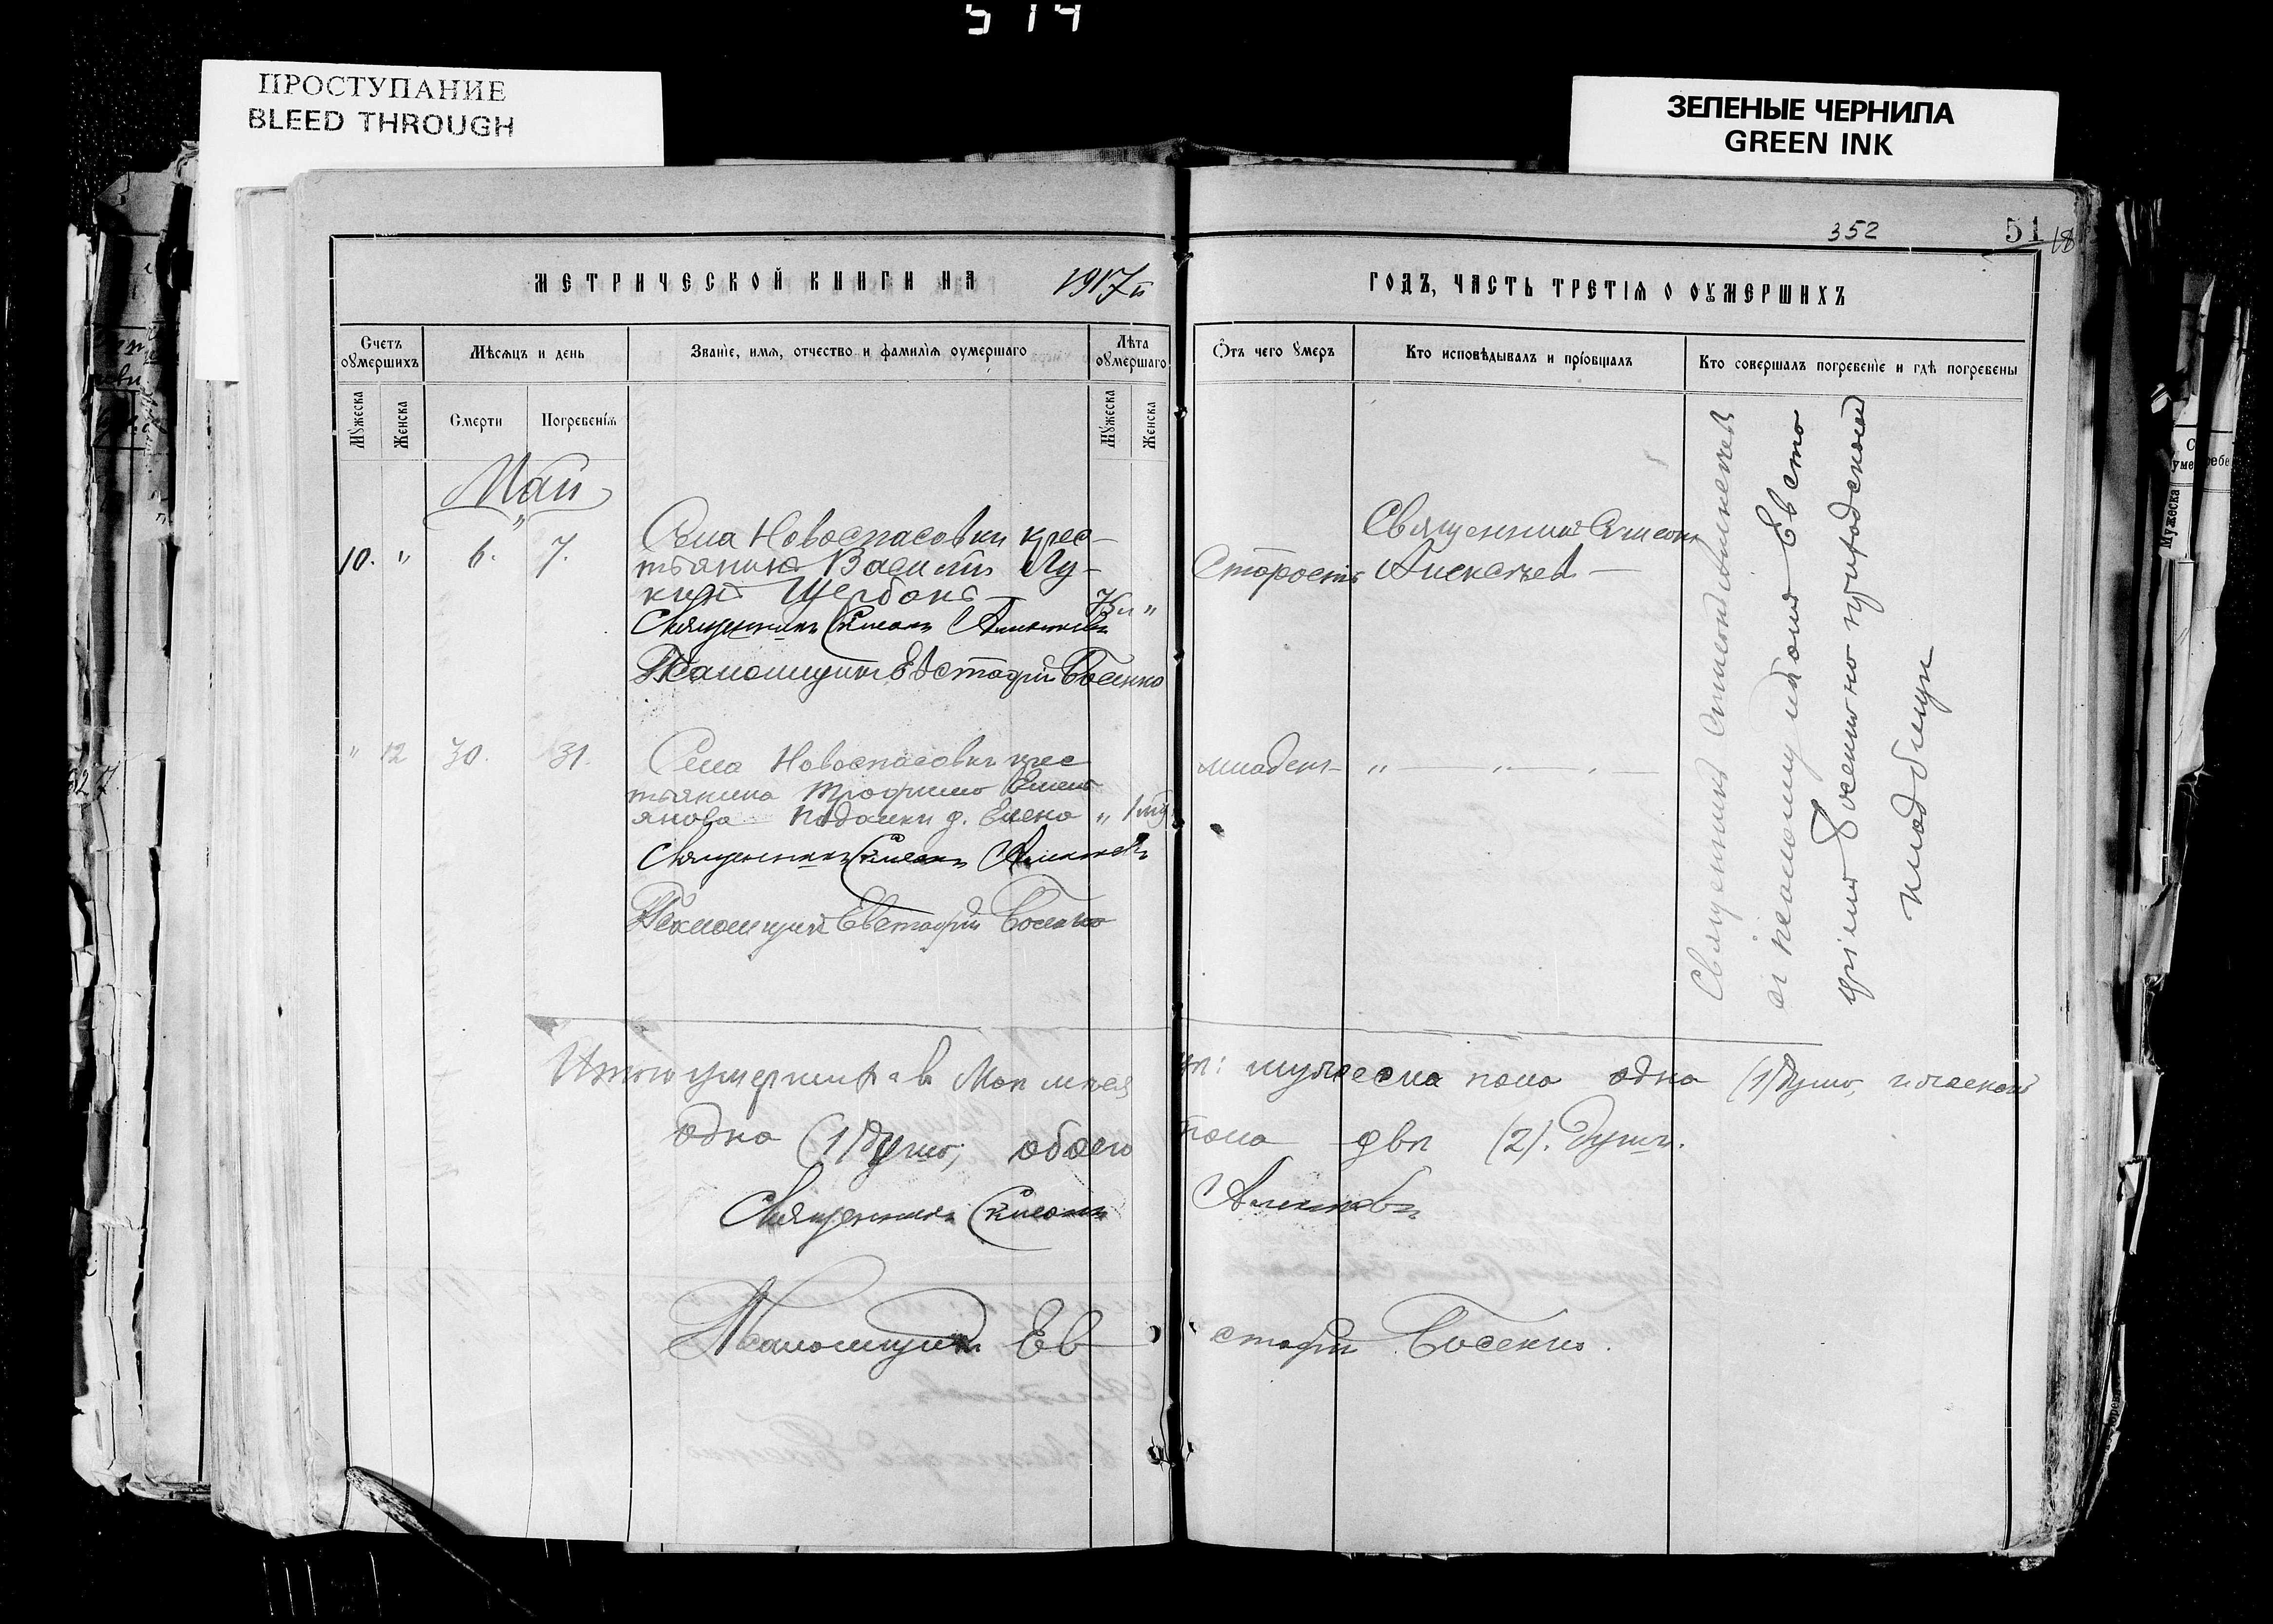 514
ПРОСТУПАНИЕ
BLEED THROUGH
ЗЕЛЕНЫЕ ЧЕРНИЛА
GREEN INK
352
51
18
МЕТРИЧЕСКОЙ КНИГИ НА 1917й ГОДЪ, ЧАСТЬ ТРЕТІЯ О ОУМЕРШИХЪ
Счетъ оумершихъ
Мѣсяцъ и день
Званіе, имя, отчество и фамилія оумершаго
Лѣта оумершаго
Отъ чего умеръ
Кто исповѣдывалъ и пріобщалъ
Кто совершалъ погребеніе и гдѣ погребены
Мужеска
Женска
Смерти
Погребенія
Мужеска
Женска
Май
10. " 6. 7.
Села Новоспасовки крес-
тьянинъ Василій Лу-
кинъ Щербакъ
75 "
Старость
Священникъ Симеонъ
Алексѣевъ
Священникъ Симеонъ Алексѣевъ
Псаломщикъ Евстафій Босенко
" 12 30. 31.
Села Новоспасовки крес
тьянина Трофима Емель
янова д. Елена " 1
младен. " " "
Священникъ Симеонъ Алексѣевъ
Псаломщикъ Евстафій Босенко
Священникъ Симеонъ Алексѣевъ
съ псаломщикомъ Евста
фіемъ Босенко на приходскомъ
кладбищѣ
Итого умершихъ въ Маѣ мѣсяцѣ: мужеска пола одна (1) душа, женска
одна (1) душа, обоего пола двѣ (2). души.
Священникъ Симеонъ Алексѣевъ
Псаломщикъ Евстафій Босенко.